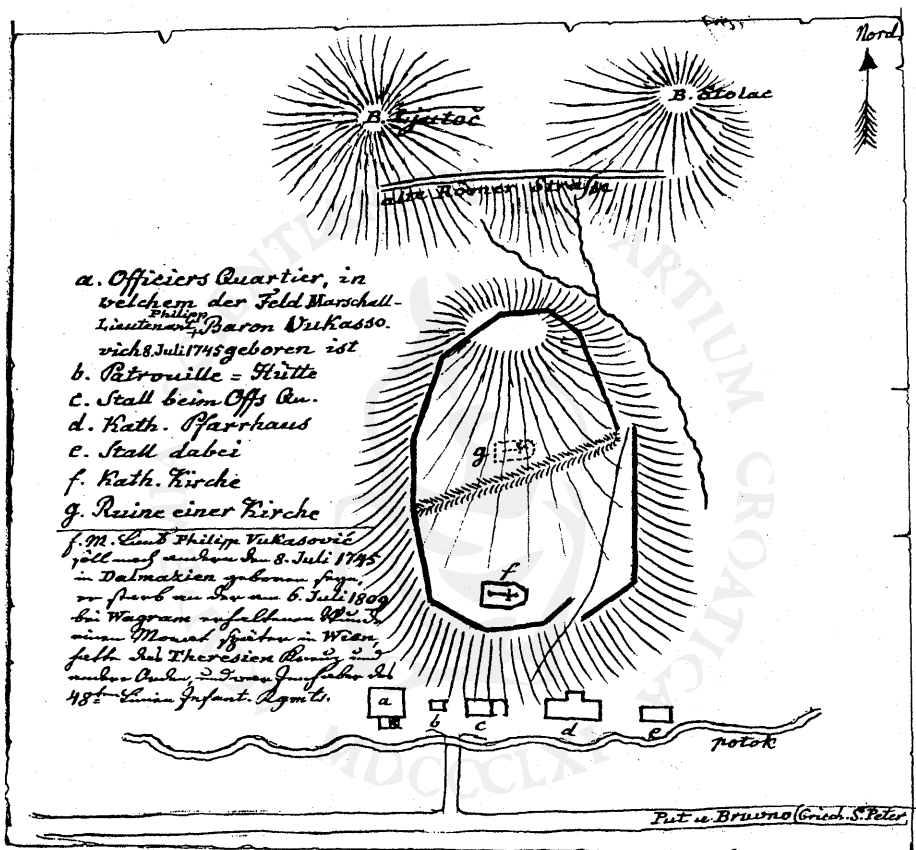 Nord
B. Ljutoč
B. Stolac
alte Rovner Straße
a. Officiers Quartier, in
welchem der Feld Marschall-
Lieutenant Philipp Baron Vukasso-
vich 8. Juli 1745 geboren ist
b. Patrouille = Hütte
c. Stall beim Offs Qu.
d. Kath. Pfarrhaus
e. Stall dabei
f. Kath. Kirche
g. Ruine einer Kirche
F. M. Lieut Philipp Vukasović
soll nach andern den 8. Juli 1745
in Dalmazien geboren seyn,
er starb an der am 6. Juli 1809
bei Wagram erhaltenen Wunde
einen Monat später in Wien,
hatte das Theresien Kreuz und
andere Orden, und war Innhaber des
48ten Linien Infant. Rgmts.
g
f
a
b
c
d
e
potok
Put u Bruvno (Griech. S. Peter
ARTIUM CROATICA
MDCCCLX